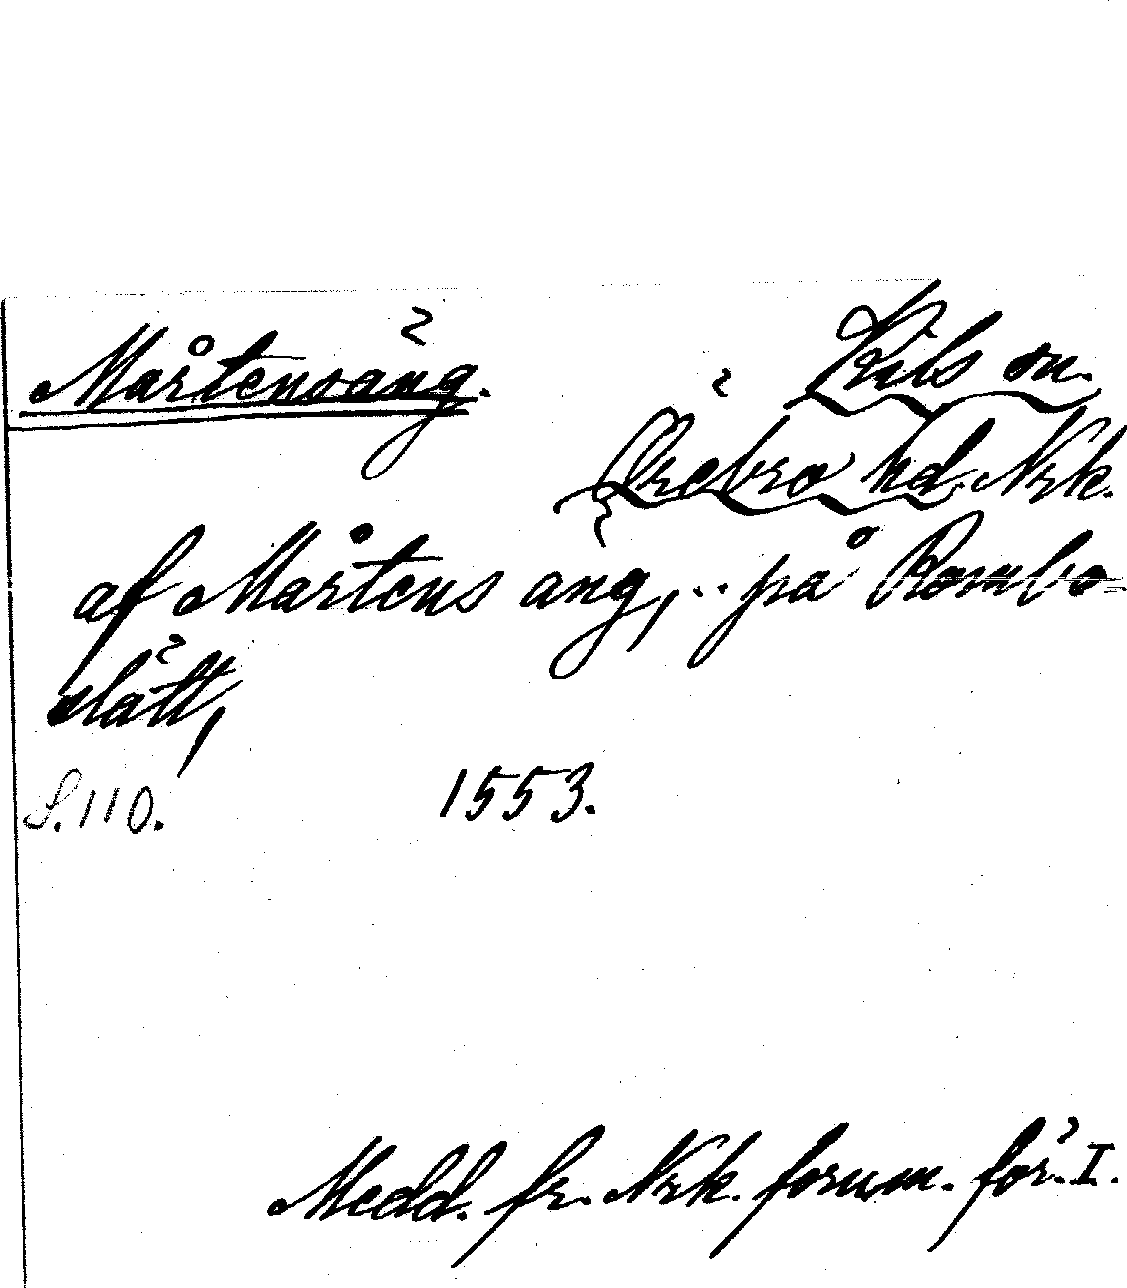 Mårtensäng.
Kils sn.
Örebro hd. Nrk.
af Mårtens äng, .. på Rombo-
slätt,
S. 110. 1553.
Medd. fr. Nrk. fornm. för. I.